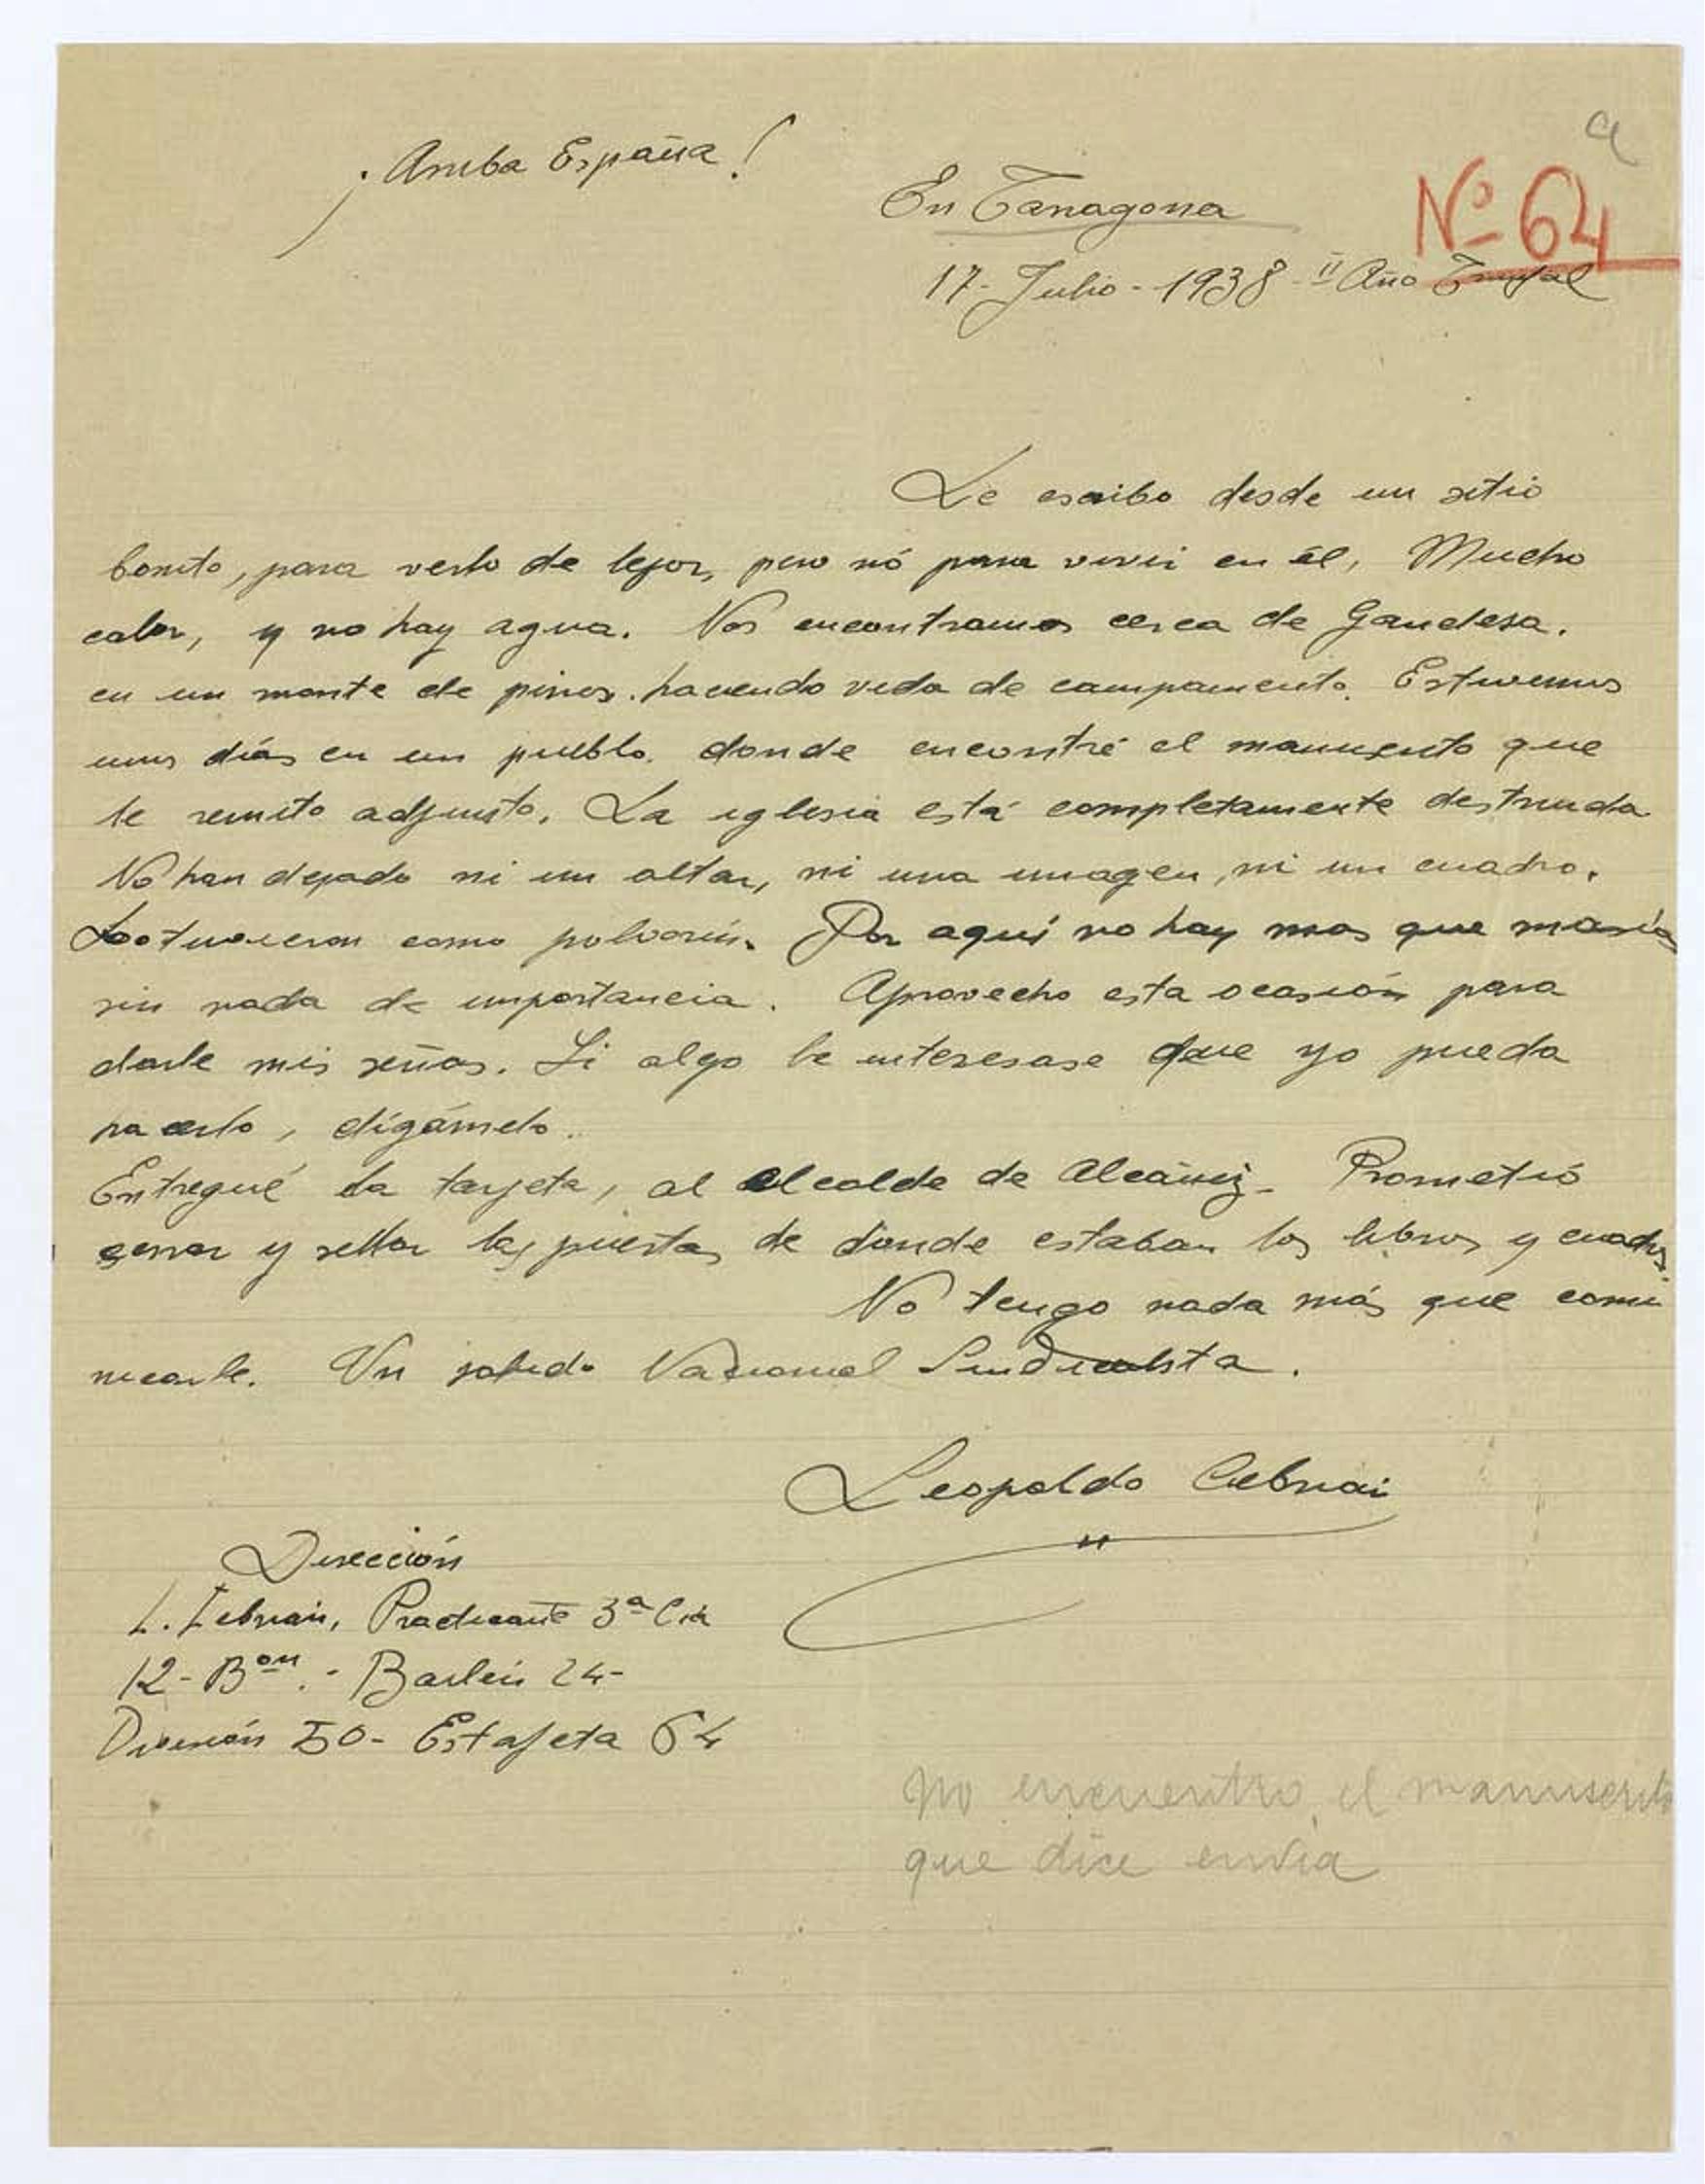 a
¡Arriba España!
En Tarragona
Nº 64
17-Julio-1938-II Año Triunfal
Le escribo desde un sitio
bonito, para verlo de lejos, pero nó para vivir en él, Mucho
calor, y no hay agua. Nos encontramos cerca de Gandesa.
en un monte de pinos. haciendo vida de campamento. Estuvimos
unos días en un pueblo. donde encontré el manuscrito que
le remito adjunto. La iglesia está completamente destruida
No han dejado ni un altar, ni una imagen, ni un cuadro.
La tuvieron como polvorín. Por aquí no hay mas que masías
sin nada de importancia. Aprovecho esta ocasión para
darle mis señas. Si algo le interesase que yo pueda
hacerlo, dígámelo.
Entregué la tarjeta, al Alcalde de Alcañiz- Prometió
cerrar y sellar las puertas de donde estaban los libros y cuadros.
No tengo nada más que comu
nicarle. Un saludo Nacional Sindicalista.
Leopoldo Cebrian
Dirección
L. Cebrian, Practicante 3ª Cia
12-Bon.- Bailén 24-
División 50- Estafeta 64
No encuentro el manuscrito
que dice envia